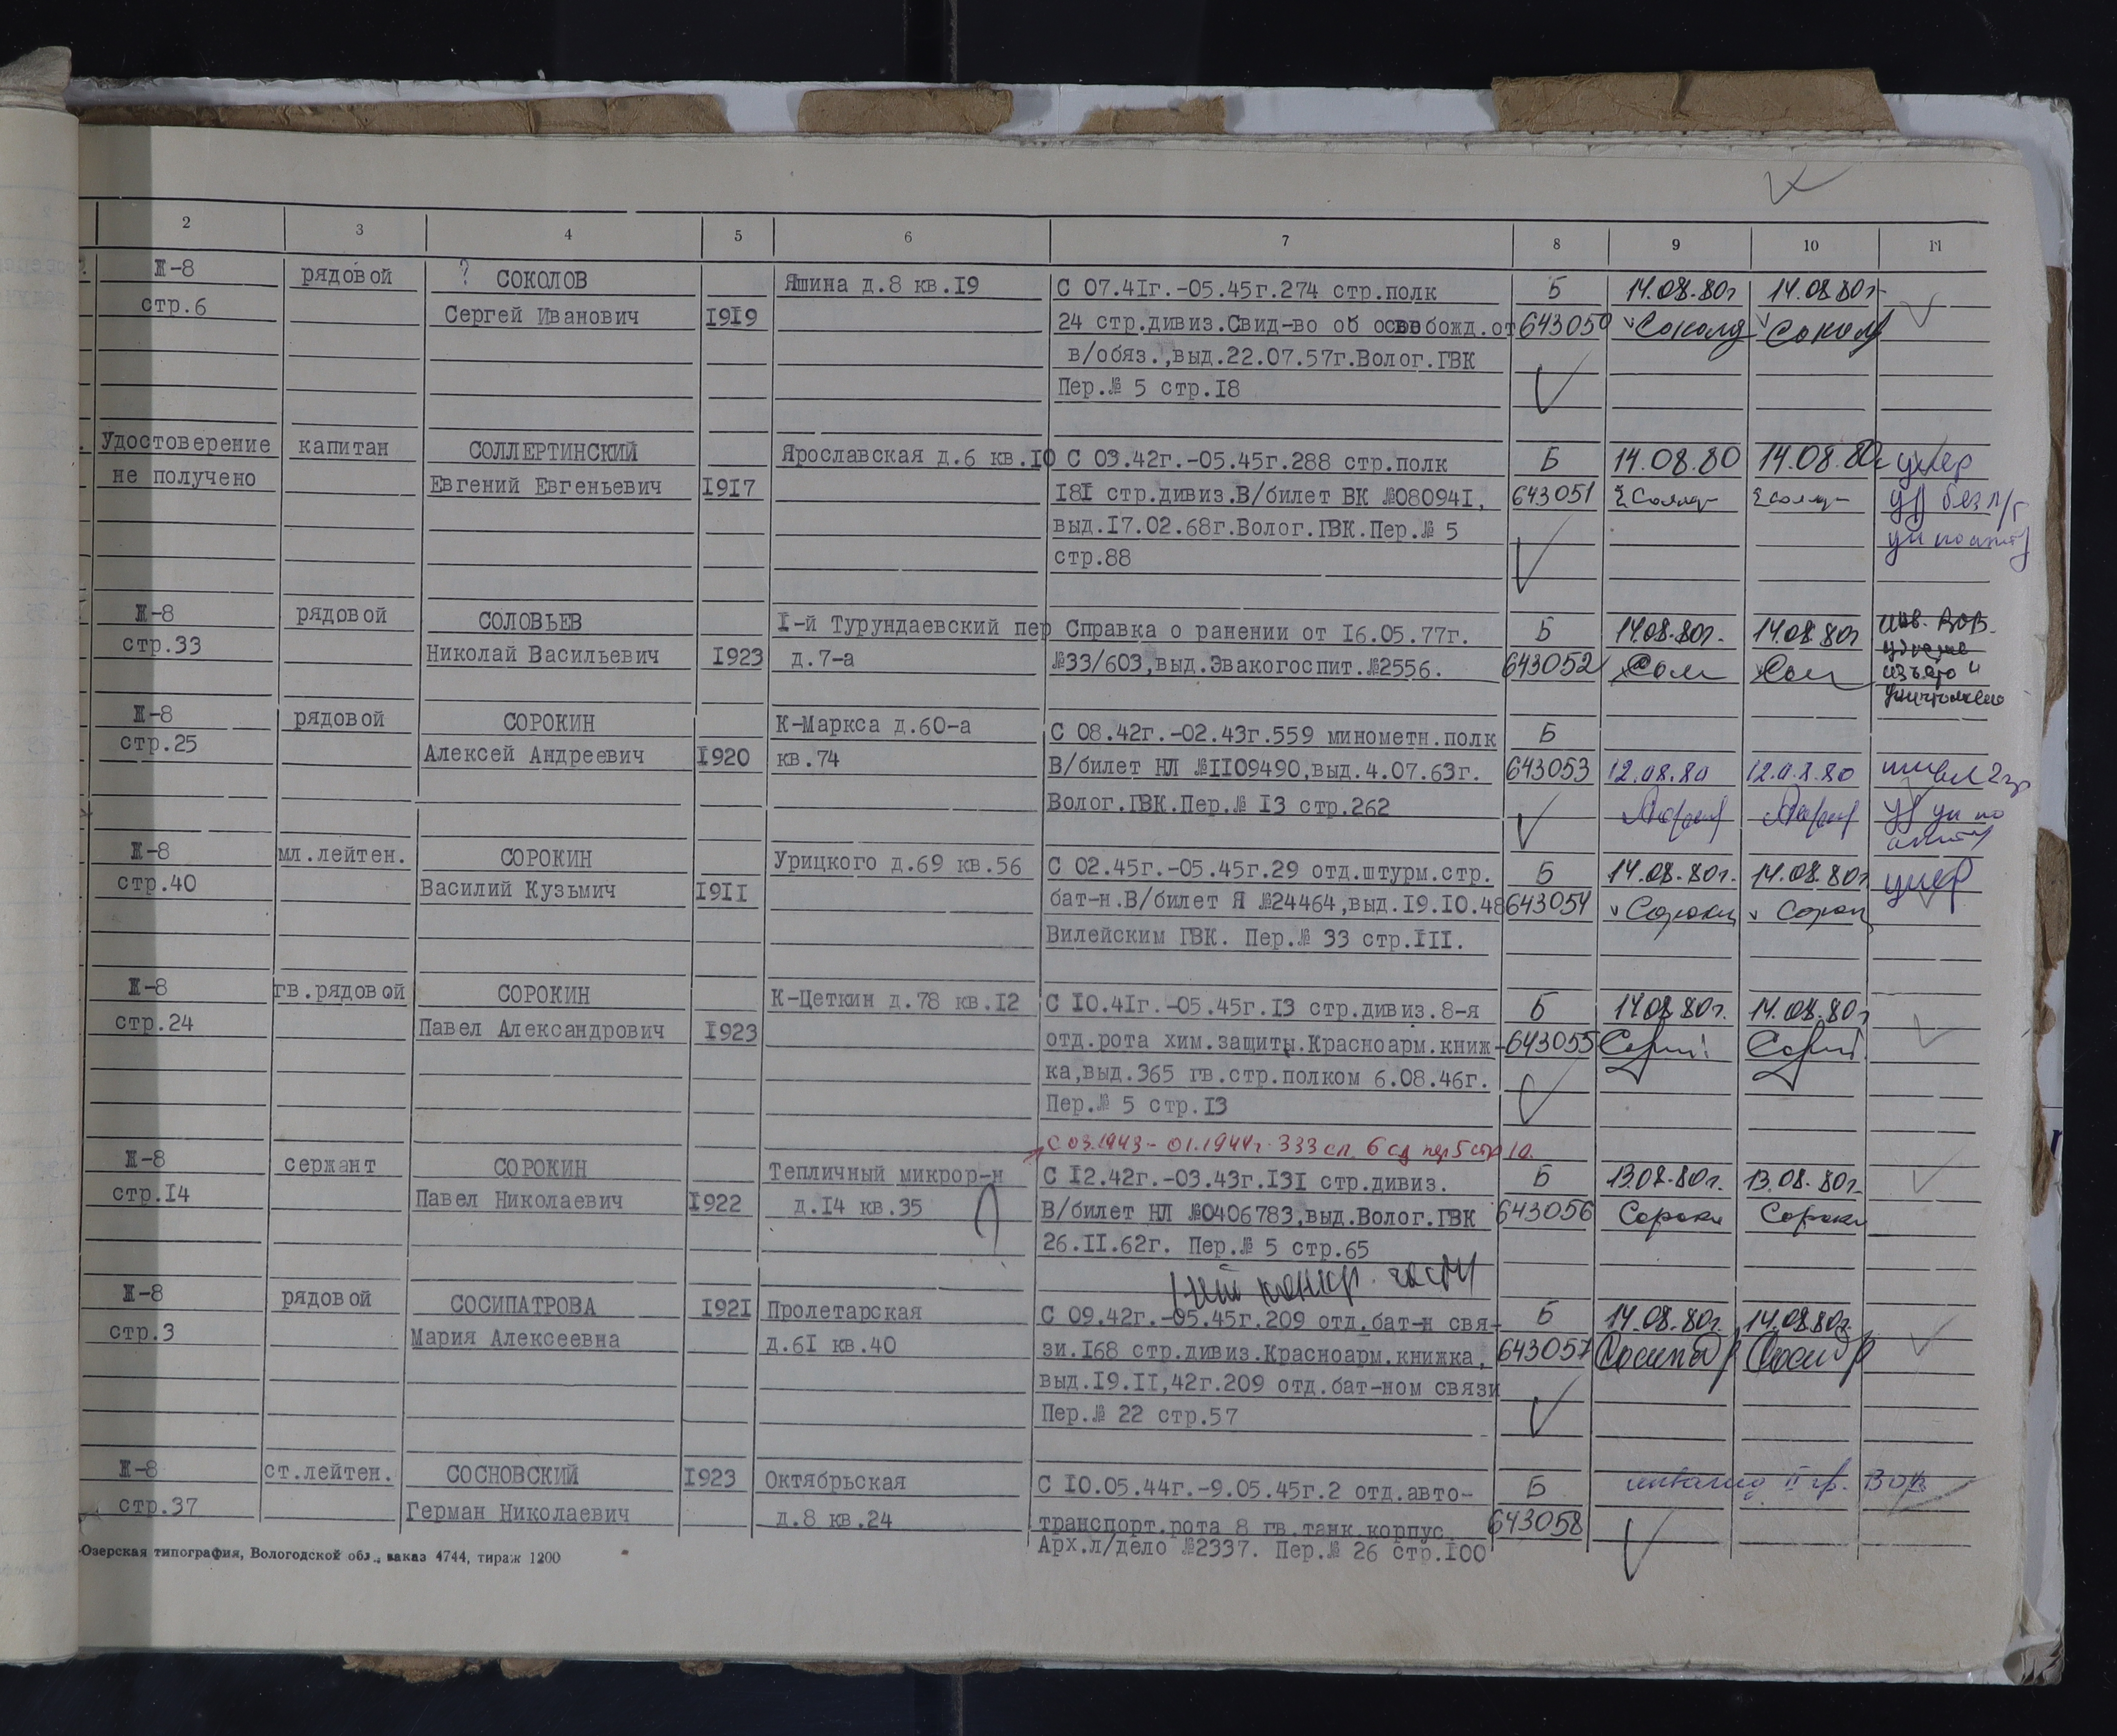 2 3 4 5 6 7 8 9 10 11
Ж-8 рядовой ? СОКОЛОВ Яшина д.8 кв.I9 С 07.4Iг.-05.45г.274 стр.полк Б 14.08.80г 14.08.80г
стр.6 Сергей Иванович I9I9 24 стр.дивиз.Свид-во об освобожд.от 643050
в/обяз.,выд.22.07.57г.Волог.ГВК
Пер.№ 5 стр.I8
Удостоверение капитан СОЛЛЕРТИНСКИЙ Ярославская д.6 кв.I0 С 03.42г.-05.45г.288 стр.полк Б 14.08.80 14.08.80г умер
не получено Евгений Евгеньевич I9I7 I8I стр.дивиз.В/билет ВК №08094I, 643051
выд.I7.02.68г.Волог.ГВК.Пер.№ 5
стр.88
Ж-8 рядовой СОЛОВЬЕВ I-й Турундаевский пер Справка о ранении от I6.05.77г. Б 14.08.80г. 14.08.80г инв. ВОВ.
стр.33 Николай Васильевич I923 д.7-а №33/603,выд.Эвакогоспит.№2556. 643052 изъято и
уничтожено
Ж-8 рядовой СОРОКИН К-Маркса д.60-а С 08.42г.-02.43г.559 минометн.полк Б
стр.25 Алексей Андреевич I920 кв.74 В/билет НЛ №II09490,выд.4.07.63г. 643053 12.08.80 12.08.80
Волог.ГВК.Пер.№ I3 стр.262
Ж-8 мл.лейтен. СОРОКИН Урицкого д.69 кв.56 С 02.45г.-05.45г.29 отд.штурм.стр. Б 14.08.80г. 14.08.80г умер
стр.40 Василий Кузьмич I9II бат-н.В/билет Я №24464,выд.I9.I0.48 643054
Вилейским ГВК. Пер.№ 33 стр.III.
Ж-8 гв.рядовой СОРОКИН К-Цеткин д.78 кв.I2 С I0.4Iг.-05.45г.I3 стр.дивиз.8-я Б 14.08.80г. 14.08.80г
стр.24 Павел Александрович I923 отд.рота хим.защиты.Красноарм.книж- 643055
ка,выд.365 гв.стр.полком 6.08.46г.
Пер.№ 5 стр.I3
С 03.1943 - 01.1944г. 333 сп. 6 сд пер 5 стр 10.
Ж-8 сержант СОРОКИН Тепличный микрор-н С I2.42г.-03.43г.I3I стр.дивиз. Б 13.08.80г. 13.08.80г.
стр.I4 Павел Николаевич I922 д.I4 кв.35 В/билет НЛ №0406783,выд.Волог.ГВК 643056
26.II.62г. Пер.№ 5 стр.65
Ж-8 рядовой СОСИПАТРОВА I92I Пролетарская С 09.42г.-05.45г.209 отд.бат-н свя- Б 14.08.80г. 14.08.80г.
стр.3 Мария Алексеевна д.6I кв.40 зи.I68 стр.дивиз.Красноарм.книжка, 643057
выд.I9.II,42г.209 отд.бат-ном связи
Пер.№ 22 стр.57
Ж-8 ст.лейтен. СОСНОВСКИЙ I923 Октябрьская С I0.05.44г.-9.05.45г.2 отд.авто- Б инвалид II гр. ВОВ
стр.37 Герман Николаевич д.8 кв.24 транспорт.рота 8 гв.танк.корпус. 643058
Арх.л/дело №2337. Пер.№ 26 стр.I00
-Озерская типография, Вологодской обл., заказ 4744, тираж 1200